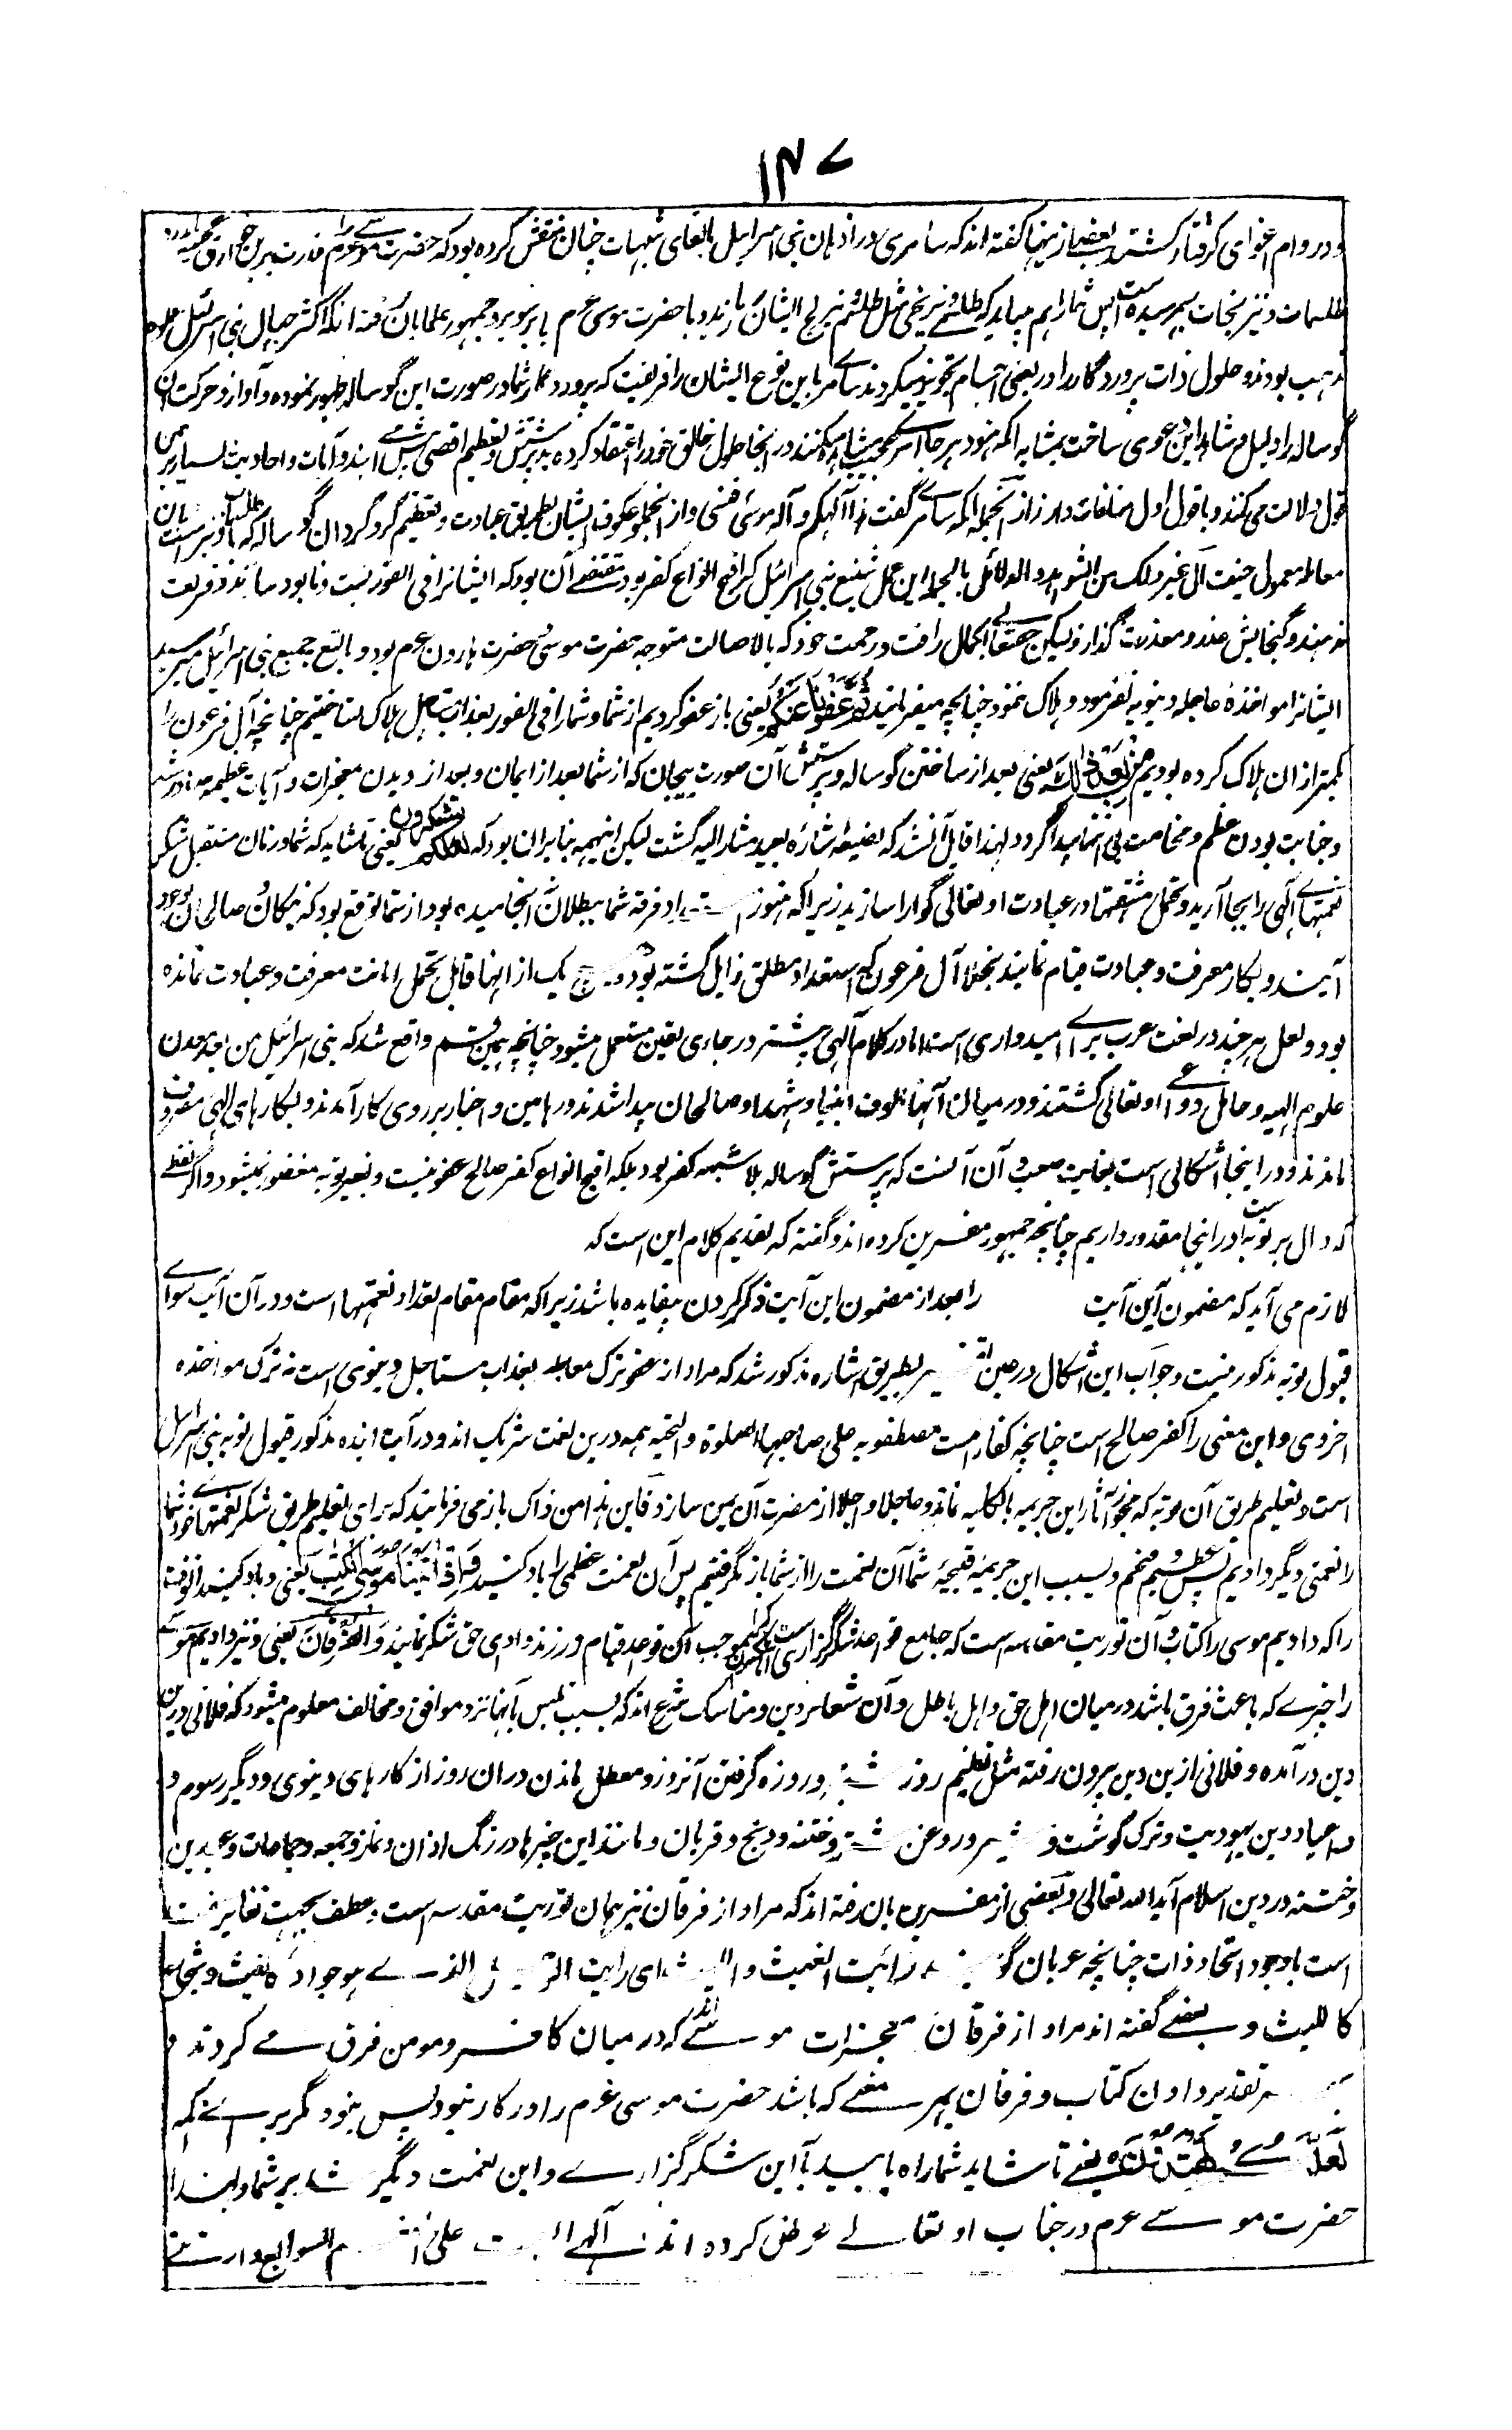 ۱۴۷
و در دام اغوای گرفتار گشتند بعضی ازینها گفته اند که سامری در اذهان بنی اسرائیل بالقای شبهات چنان منقش کرده بود که حضرت موسی عرم قدرت برین خوارق عجیبه
طلسمات و نیرنجات بهم رسیده است پس شما را هم میباید که طلسمی و نیرنجی مثل طلسم و نیرنج ایشان سازید و با حضرت موسی عرم برابر شوید و جمهور علما بآن رفته اند که اکثر جهال بنی اسرائیل حلولی
مذهب بودند و حلول ذات پروردگار را در بعضی اجسام تجویز میکردند سامری باین نوع ایشان را فریفت که پروردگار شما در صورت این گوساله ظهور نموده و آواز و حرکت آن
گوساله را دلیل و شاهد این دعوی ساخت بمشابه آنکه هنود هر جا امر عجیب مشاهده میکنند در آنجا حلول خالق خود را اعتقاد کرده به پرستش و تعظیم اقصی پیش می آیند و آیات و احادیث بسیار برین
قول دلالت می کنند و با قول اول منافات دارند از آنجمله آنکه سامری گفت هذا الهکم و اله موسی فنسی و از آنجمله عکوف ایشان بطریق عبادت و تعظیم گرداگرد آن گوساله که با طلسمات و نیرنجات آن
معامله معمول نیست الی غیر ذلک من الشواهد و الدلائل بالجمله این عمل شنیع بنی اسرائیل که اقبح انواع کفر بود مقتضی آن بود که ایشانرا فی الفور نیست و نابود سازند و فرصت
ندهند و گنجایش عذر و معذرت نگذارند لیکن حق تعالی بکمال رافت و رحمت خود که بالاصالت متوجه حضرت موسی و حضرت هارون عرم بود و بالتبع جمیع بنی اسرائیل میرسید
ایشانرا مواخذهٔ عاجله دنیویه نفرمود و هلاک ننمود چنانچه میفرمایند ثُمَّ عَفَوْنَا عَنْكُمْ یعنی باز عفو کردیم از شما و شما را فی الفور بعذاب مستاصل هلاک نساختیم چنانچه آل فرعون را
کمتر از آن هلاک کرده بودیم مِنْ بَعْدِ ذٰلِكَ یعنی بعد از ساختن گوساله و پرستش آن صورت بیجان که از شما بعد از ایمان و بعد از دیدن معجزات و آیات عظیمه صادر شد
و جنایت بودن عظم و فخامت بی انتها پیدا کرد و لهذا قابل آن شد که بصیغهٔ اشارهٔ بعید مشار الیه گشت لیکن اینهمه بنا بر آن بود که لَعَلَّكُمْ تَشْكُرُونَ یعنی باشاید که شما در زمان مستقبل شکر
نعمتهای الهی را بجا آرید و تحمل مشقتها در عبادت او تعالی گوارا سازید زیرا که هنوز است... اد فرقه شما ببطلان انجامیده بود از شما توقع بود که نیکان و صالحان بوجود
آیند و بکار معرفت و عبادت قیام نمایند بخلاف آل فرعون که استعداد مطلق زایل گشته بود و هیچ یک از آنها قابل تحمل امانت معرفت و عبادت نمانده
بود و لعل هر چند در لغت عرب برای امیدواری است اما در کلام الهی بیشتر در جای یقین مستعمل میشود چنانچه همین قسم واقع شد که بنی اسرائیل من بعد معدن
علوم الهیه و حامل دواعی او تعالی گشتند و در میان آنها الوف انبیا و شهدا و صالحان پیدا شدند و رهابین و احبار بر روی کار آمدند و بکارهای الهی مصروف
ماندند و در اینجا اشکالی است بغایت صعب و آن آنست که پرستش گوساله بلا شبهه کفر بود بلکه اقبح انواع کفر و کفر صالح عفو نیست و بغیر توبه مغفور نمیشود و اگر لفظی
که دال بر توبه است در اینجا مقدر داریم چنانچه جمهور مفسرین کرده اند و گفته که تقدیم کلام این است که
لازم می آید که مضمون این آیت را بعد از مضمون این آیت ذکر کردن بیفایده باشد زیرا که مقام مقام تعداد نعمتها است و در آن آیت سوای
قبول توبه مذکور نیست و جواب این اشکال در عین تفسیر بطریق اشاره مذکور شد که مراد از عفو ترک معامله بعذاب مستاصل دنیوی است نه ترک مواخذه
اخروی و این معنی را کفر صالح است چنانچه کفار امت مصطفویه علی صاحبها الصلوة و التحیه همه درین نعمت شریک اند و در آیت آینده مذکور قبول توبه بنی اسرائیل
است و تعلیم طریق آن توبه که محو آثار این جریمه بالکلیه نماید و عاجلا و آجلا از مضرت آن ایمن سازد فاین هذا من ذاک باز می فرمایند که برای تعلیم طریق شکر نعمتهای خود شما
را نعمتی دیگر دادیم بس عظیم و فخیم و بسبب این جریمهٔ قبیحهٔ شما آن نعمت را از شما باز نگرفتیم پس آن نعمت عظمی را یاد کنید وَإِذْ آتَيْنَا مُوسَى الْكِتَابَ یعنی و یاد کنید آنوقت
را که دادیم موسی را کتاب و آن توریت مقدسه است که جامع قواعد شکرگزاری است تا بموجب آن قواعد قیام ورزند و ادای حق شکر نمایند وَالْفُرْقَانَ یعنی و نیز دادیم موسی
را چیزی که باعث فرق باشد در میان اهل حق و اهل باطل و آن شعایر دین و مناسک شرع اند که بسبب تلبس بآنها نزد موافق و مخالف معلوم میشود که فلانی درین
دین در آمده و فلانی ازین دین بیرون رفته مثل تعظیم روز شنبه و روزه گرفتن آنروز و معطل ماندن در آن روز از کارهای دنیوی و دیگر رسوم و
و اعیاد دین یهودیت و ترک گوشت و شیر و روغن شتر و ختنه و ذبح و قربان و مانند این چیزها در رنگ اذان و نماز و جمعه و جماعات و عیدین
و ختنه در دین اسلام آیداالله تعالی و بعضی از مفسرین بآن رفته اند که مراد از فرقان نیز همان توریت مقدسه است و عطف بجهت تغایر صفت
است باوجود اتحاد ذات چنانچه عربان گویند رایت الغیث واللیث ای رایت الذی هو جواد کالغیث و شجاع
کاللیث و بعضی گفته اند مراد از فرقان معجزات موسی اند که در میان کافر و مومن فرق می کردند و
بهر تقدیر دادن کتاب و فرقان بهر معنی که باشد حضرت موسی عرم را در کار نبود پس نبود مگر برای آنکه
لَعَلَّكُمْ تَهْتَدُونَ یعنی تا شاید شما راه یابید باین شکرگزاری و این نعمت دیگر شد بر شما و لهذا
حضرت موسی عرم در جناب او تعالی عرض کرده اند الهی